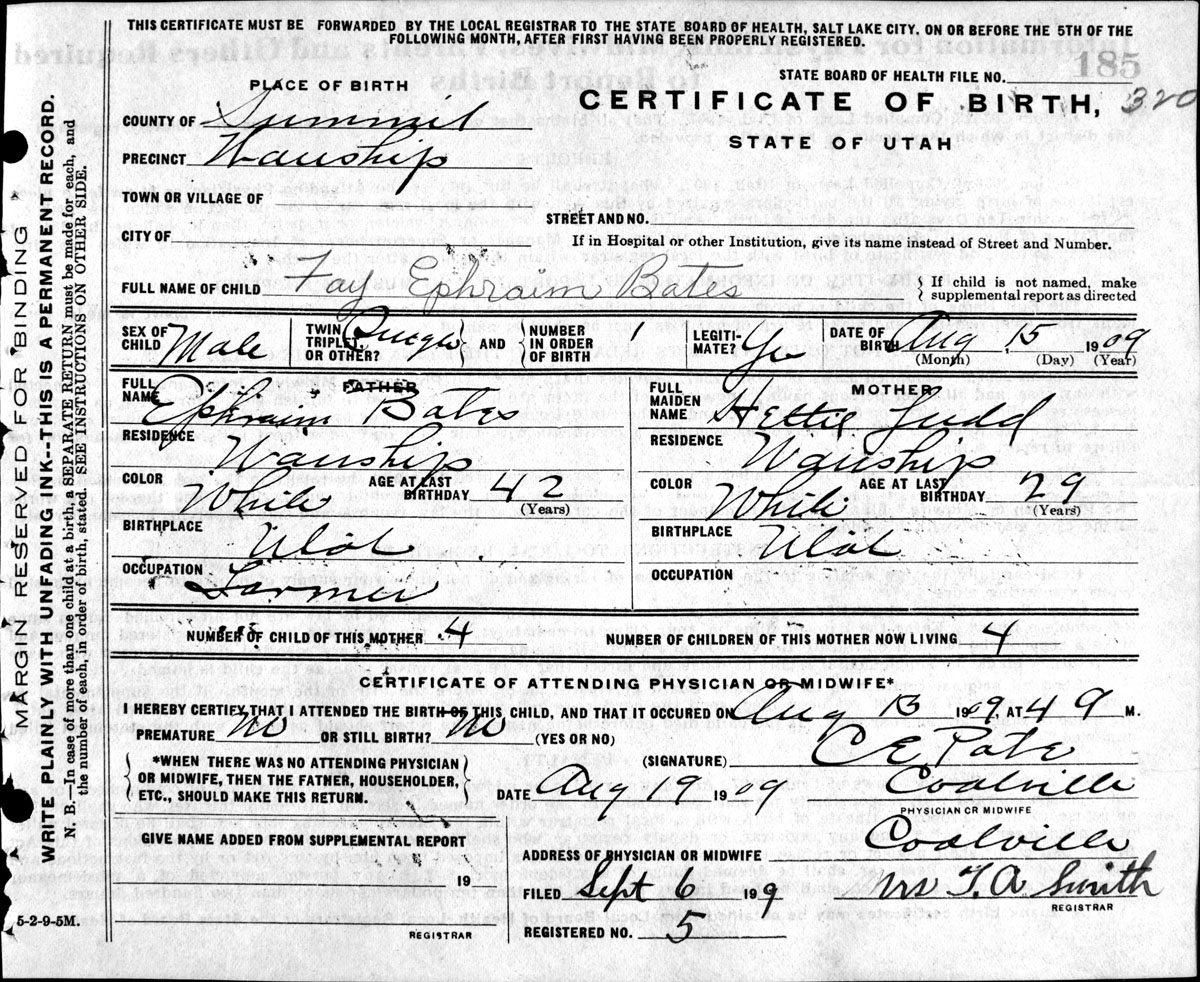 THIS CERTIFICATE MUST BE FORWARDED BY THE LOCAL REGISTRAR TO THE STATE BOARD OF HEALTH, SALT LAKE CITY. ON OR BEFORE THE 5TH OF THE
FOLLOWING MONTH, AFTER FIRST HAVING BEEN PROPERLY REGISTERED.
STATE BOARD OF HEALTH FILE NO.
185
PLACE OF BIRTH
CERTIFICATE OF BIRTH, 320
COUNTY OF Summit
STATE OF UTAH
PRECINCT Wanship
TOWN OR VILLAGE OF
STREET AND NO.
CITY OF
If in Hospital or other Institution, give its name instead of Street and Number.
FULL NAME OF CHILD Fay Ephraim Bates
If child is not named, make
supplemental report as directed
SEX OF CHILD Male
TWIN TRIPLET, OR OTHER? Single AND NUMBER IN ORDER OF BIRTH
LEGITIMATE? Yes
DATE OF BIRTH Aug 15 1909
(Month) (Day) (Year)
FATHER
FULL NAME Ephraim Bates
RESIDENCE Wanship
COLOR White AGE AT LAST BIRTHDAY 42
(Years)
BIRTHPLACE Utah
OCCUPATION Farmer
MOTHER
FULL MAIDEN NAME Hettie Judd
RESIDENCE Wanship
COLOR White AGE AT LAST BIRTHDAY 29
(Years)
BIRTHPLACE Utah
OCCUPATION
NUMBER OF CHILD OF THIS MOTHER 4 NUMBER OF CHILDREN OF THIS MOTHER NOW LIVING 4
CERTIFICATE OF ATTENDING PHYSICIAN OR MIDWIFE*
I HEREBY CERTIFY THAT I ATTENDED THE BIRTH OF THIS CHILD, AND THAT IT OCCURED ON Aug 13 1909, AT 4 M.
PREMATURE No OR STILL BIRTH? No (YES OR NO)
*WHEN THERE WAS NO ATTENDING PHYSICIAN
OR MIDWIFE, THEN THE FATHER, HOUSEHOLDER,
ETC., SHOULD MAKE THIS RETURN.
(SIGNATURE) C E Pate
DATE Aug 19 1909 Coalville
PHYSICIAN OR MIDWIFE
GIVE NAME ADDED FROM SUPPLEMENTAL REPORT
19
REGISTRAR
ADDRESS OF PHYSICIAN OR MIDWIFE Coalville
FILED Sept 6 199 Mrs T. A. Smith
REGISTRAR
REGISTERED NO. 5
5-2-9-5M.
MARGIN RESERVED FOR BINDING
WRITE PLAINLY WITH UNFADING INK--THIS IS A PERMANENT RECORD.
N. B.--In case of more than one child at a birth, a SEPARATE RETURN must be made for each, and
the number of each, in order of birth, stated. SEE INSTRUCTIONS ON OTHER SIDE.